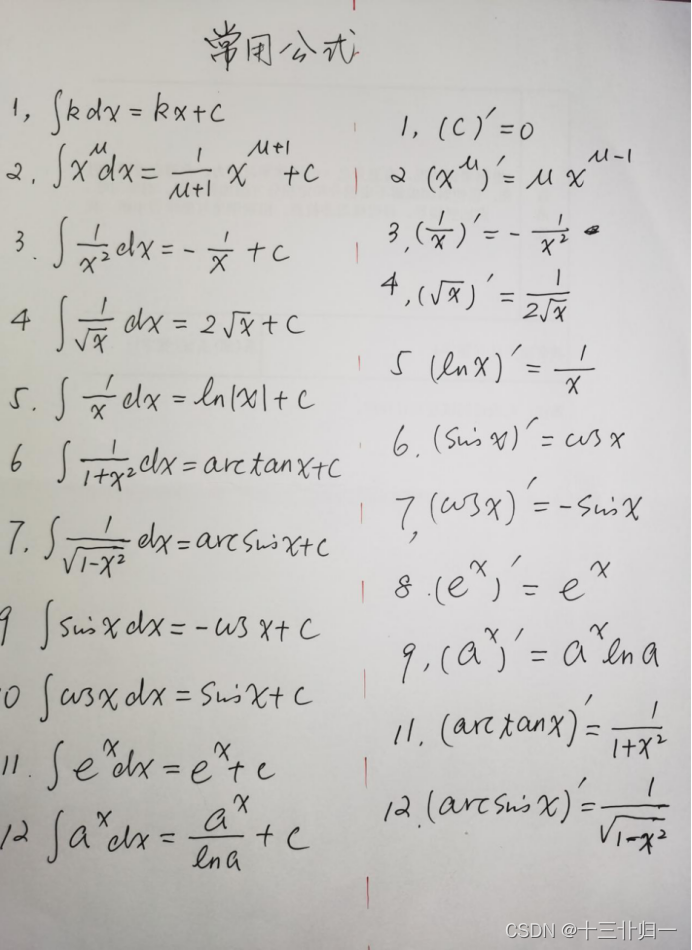 常用公式
1, ∫kdx = kx+C
2. ∫x^μdx = 1/(μ+1) x^(μ+1) + C
3. ∫1/x² dx = - 1/x + C
4 ∫1/√x dx = 2√x + C
5. ∫1/x dx = ln|x| + C
6 ∫1/(1+x²) dx = arctanx+C
7. ∫1/√(1-x²) dx = arcsinx+C
9 ∫sinxdx = -cosx+C
0 ∫cosxdx = sinx+C
11. ∫e^xdx = e^x+C
12 ∫a^xdx = a^x/lna + C
1, (C)′=0
2 (x^μ)′= μx^(μ-1)
3, (1/x)′= - 1/x²
4, (√x)′= 1/(2√x)
5 (lnx)′= 1/x
6. (sinx)′= cosx
7, (cosx)′= -sinx
8. (e^x)′= e^x
9, (a^x)′= a^xlna
11. (arctanx)′= 1/(1+x²)
12. (arcsinx)′= 1/√(1-x²)
CSDN @十三卝归一